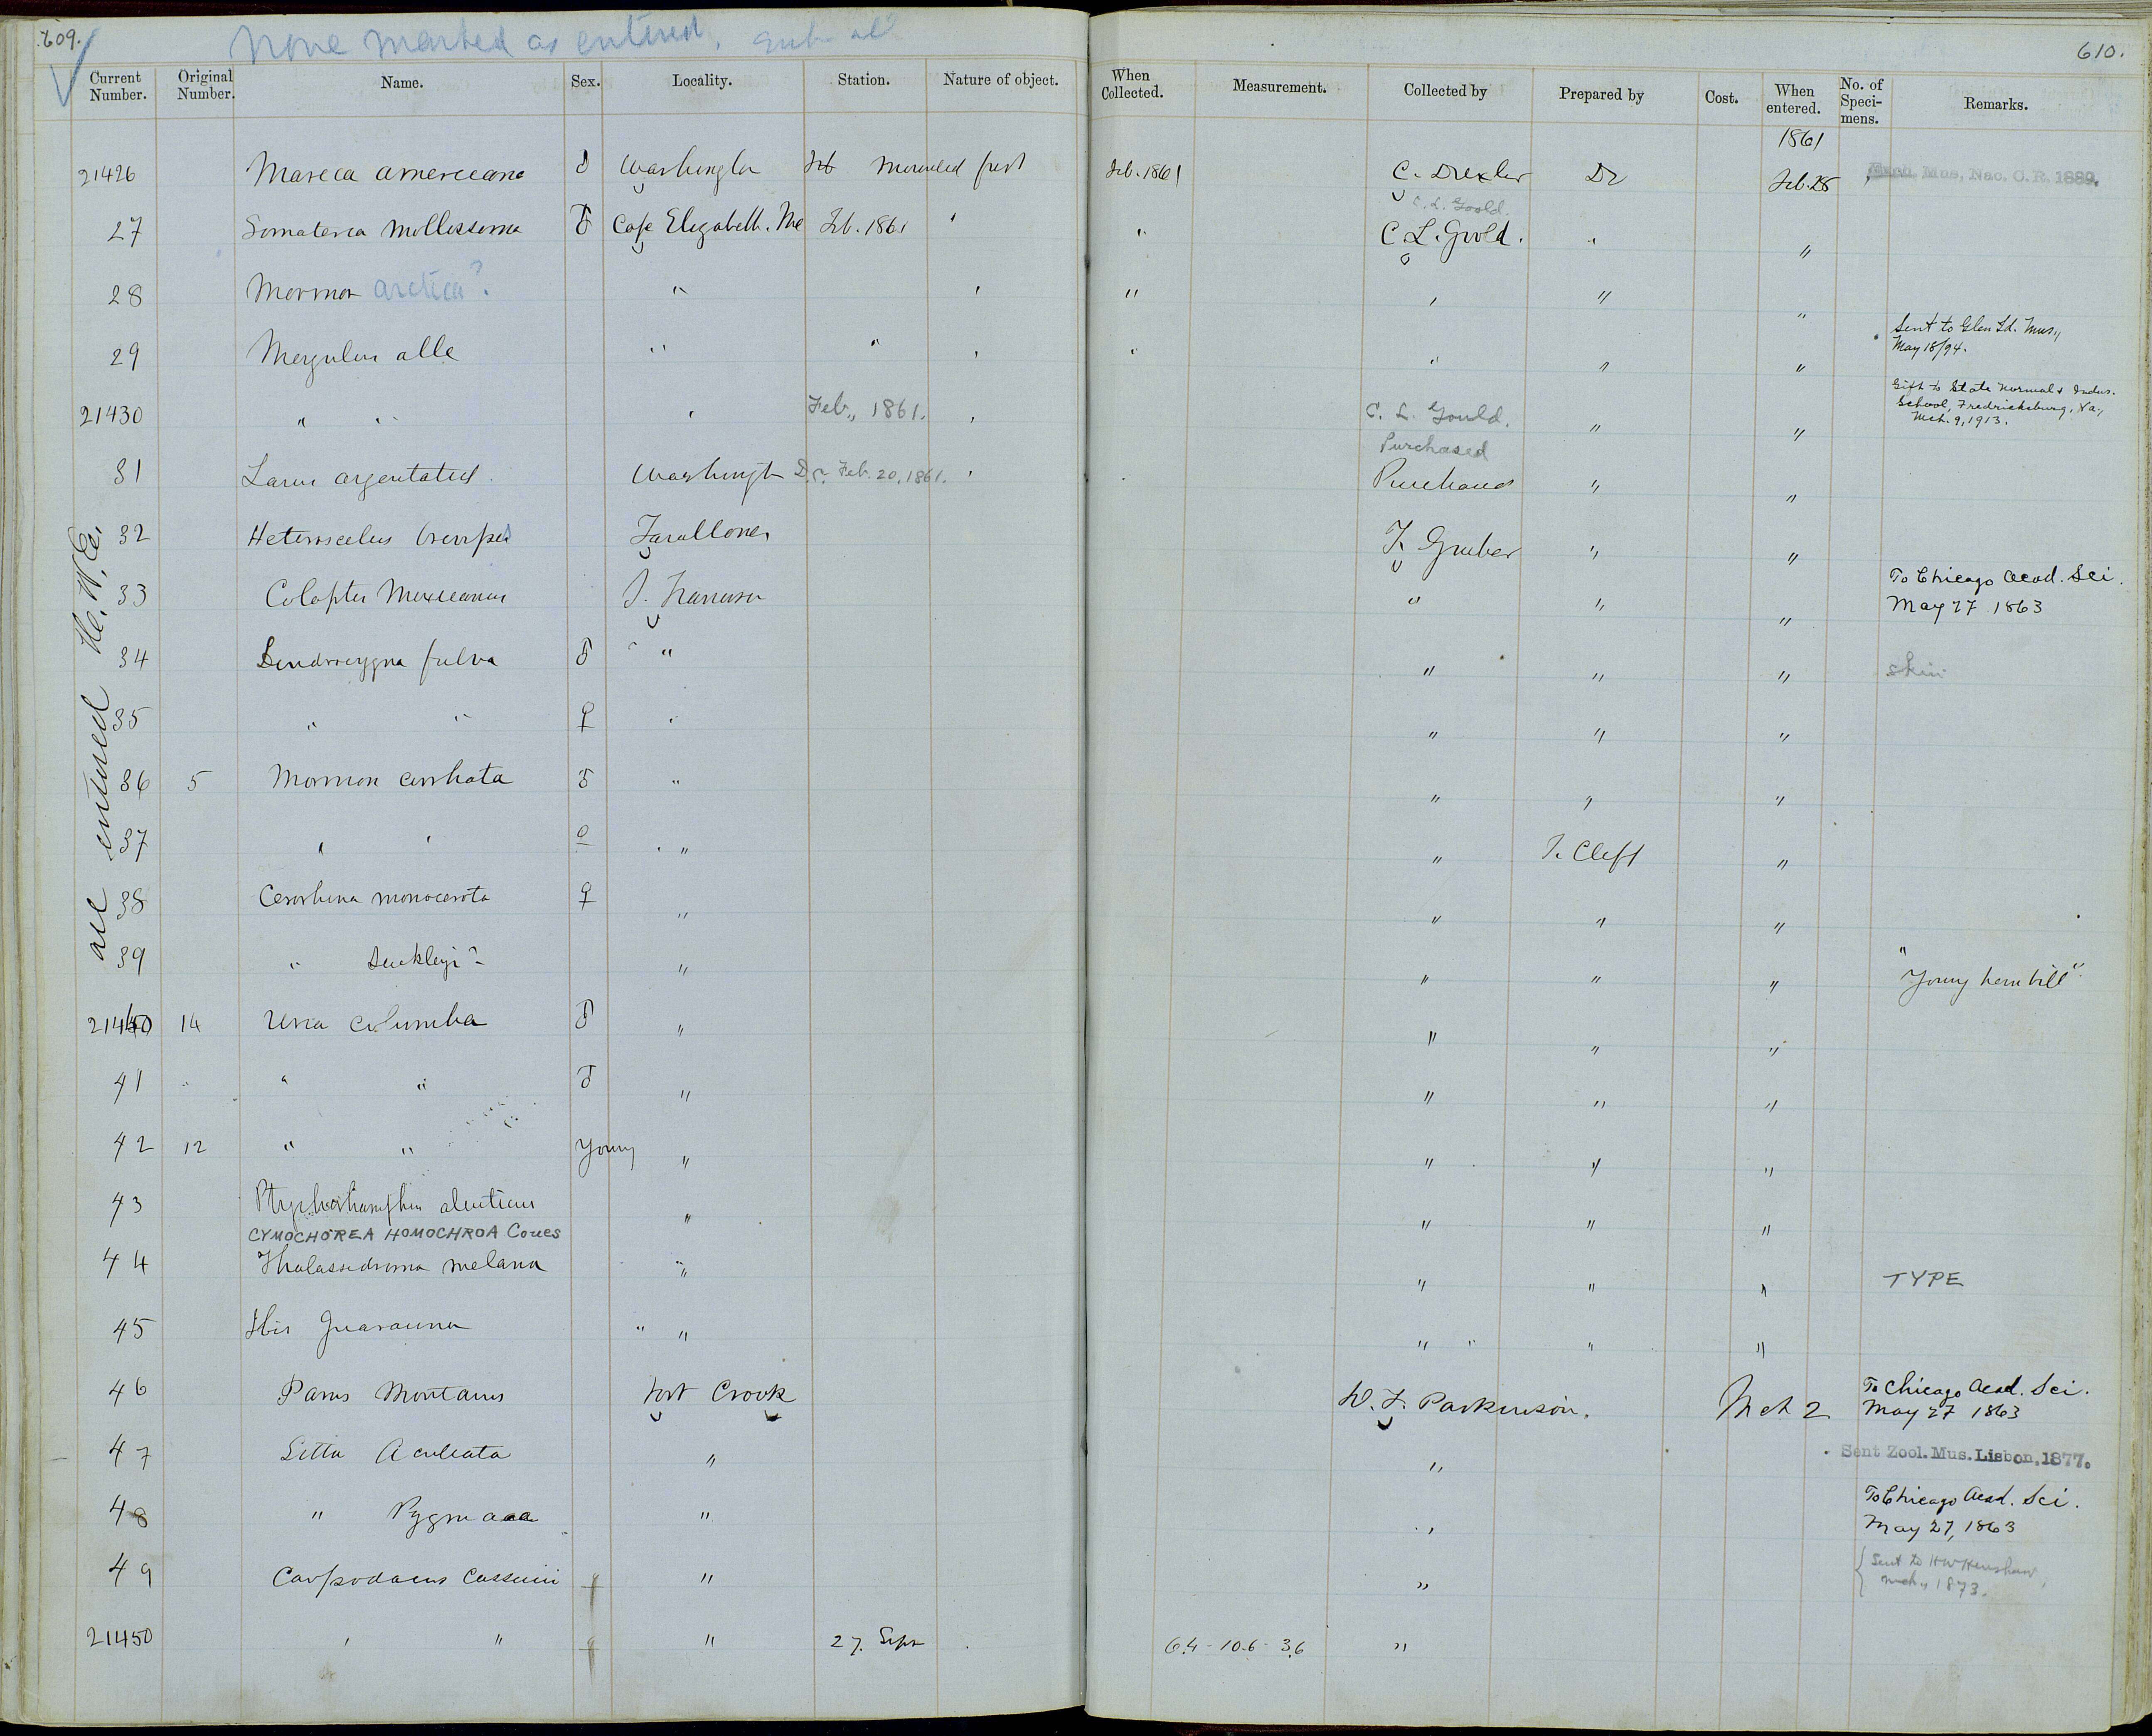 609.
None marked as entered.
610.
Current Number. Original Number. Name. Sex. Locality. Station. Nature of object. When Collected. Measurement. Collected by Prepared by Cost. When entered. No. of Speci-mens. Remarks.
1861
21426 Mareca americana ♂ Washington Feb Mounded Feb. 1861 C. Drexler Dr Feb. 28 Mus. Nac. C.R. 1889.
C. L. Goold.
27 Somateria Mollissema ♂ Cape Elizabeth. Me Feb. 1861 " " C. L. Goold. " "
28 Mormon arctica? " " " " " "
Sent to Glen Id. Mus.,
29 Mergulus alle " " " " " " " May 18/94.
Gift to State Normal & Indus.
School, Fredricksburg, Va.,
21430 " " " Feb., 1861. " C. L. Gould. " " Mch. 9, 1913.
Purchased
31 Larus argentatus Washingt D.C. Feb. 20, 1861. " Purchased " "
32 Heteroscelus brevipes Farallones F. Gruber " "
To Chicago Acad. Sci.
33 Colaptes Mexicanus S. Francisco " " " May 27 1863
34 Dendrocygna fulva ♂ " " " " skin
35 " " ♀ " " " "
36 5 Mormon cirrhata ♂ " " " "
37 " " ♀ " " T. Cleft "
38 Cerorhina monocerota ♀ " " " "
39 " Suckleyi? " " " " "Young horn bill"
21440 14 Uria columba ♂ " " " "
41 " " " ♂ " " " "
42 12 " " Young " " " "
43 Ptychorhamphus aleuticus " " " "
CYMOCHOREA HOMOCHROA Coues
44 Thalassidroma melana " " " " TYPE
45 Ibis Guarauna " " " " " "
46 Parus Montanus Fort Crook D. F. Parkinson. Mch 2 To Chicago Acad. Sci.
May 27 1863
47 Sitta Aculeata " " Sent Zool. Mus. Lisbon, 1877.
48 " Pygmaea " " To Chicago Acad. Sci.
May 27, 1863
49 Carpodacus Cassinii ♀ " " Sent to HW Henshaw,
Mch., 1873.
21450 " " ♀ " 27. Sept 6.4 - 10.6 - 3.6 "
all entured H. W. E.